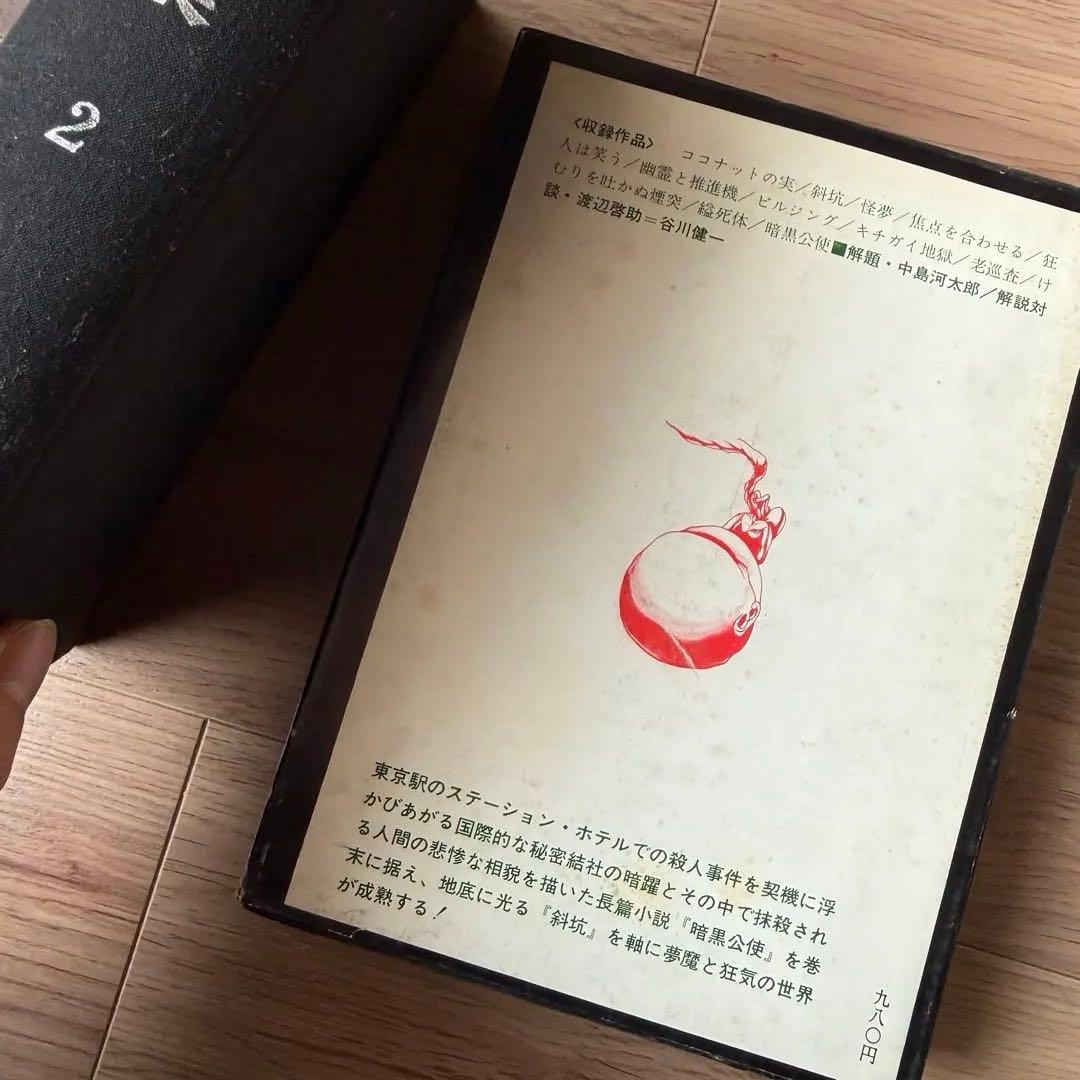 2
〈収録作品〉 ココナットの実／斜坑／怪夢／焦点を合わせる／狂
人は笑う／幽霊と推進機／ビルジング／キチガイ地獄／老巡査／け
むりを吐かぬ煙突／縊死体／暗黒公使■解題・中島河太郎／解説対
談・渡辺啓助＝谷川健一
東京駅のステーション・ホテルでの殺人事件を契機に浮
かびあがる国際的な秘密結社の暗躍とその中で抹殺され
る人間の悲惨な相貌を描いた長篇小説『暗黒公使』を巻
末に据え、地底に光る『斜坑』を軸に夢魔と狂気の世界
が成熟する！
九八〇円